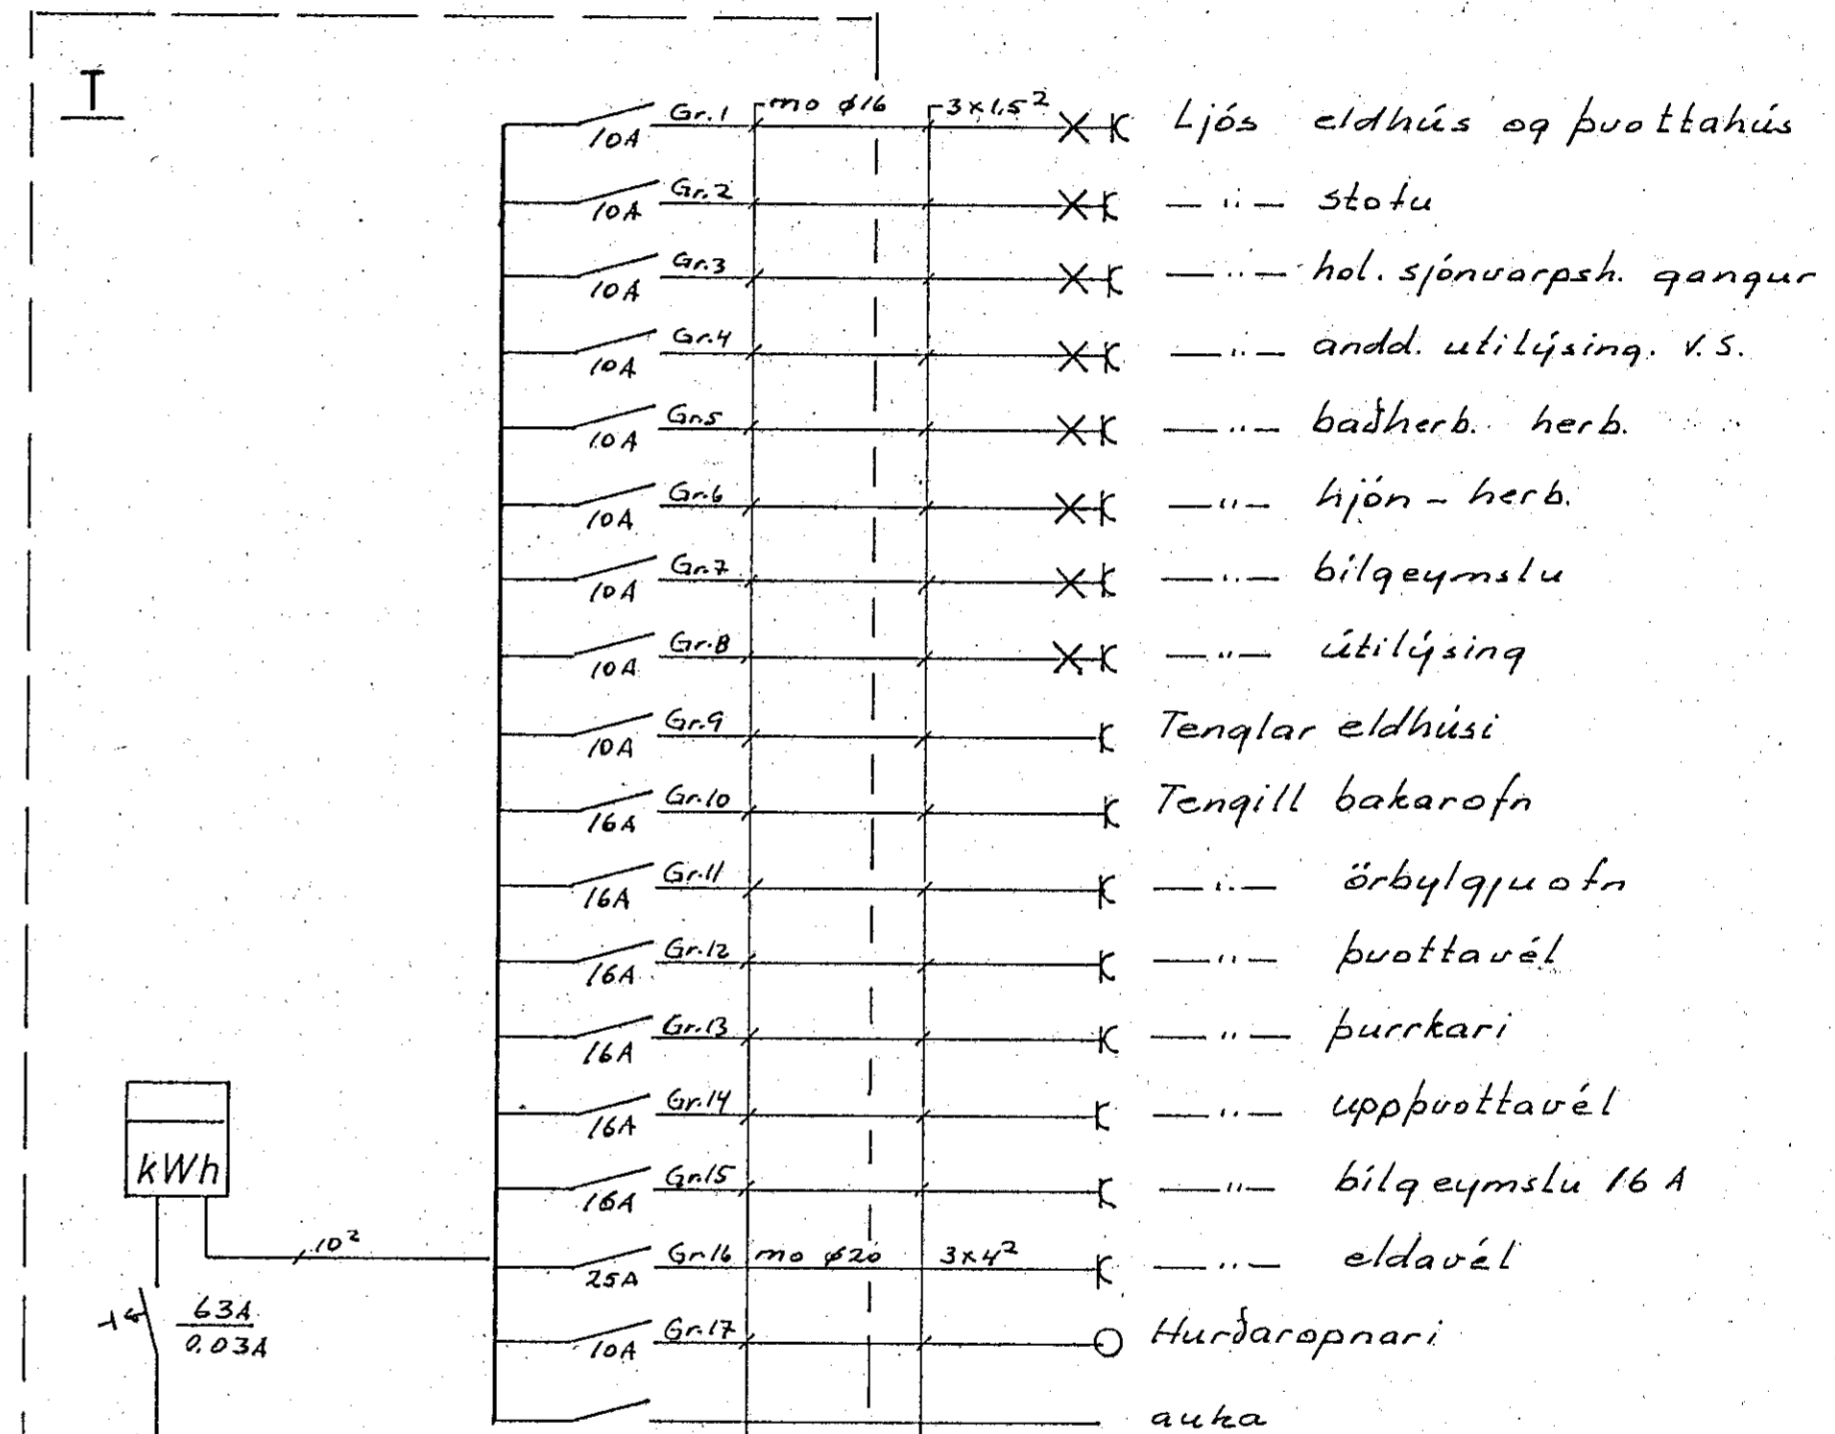 T
Gr.1 mo ø16 3x1,5²
10A
Ljós eldhús og þvottahús
Gr.2
10A
— ,, — stofu
Gr.3
10A
— ,, — hol. sjónvarpsh. gangur
Gr.4
10A
— ,, — andd. utilýsing. v.s.
Gr.5
10A
— ,, — baðherb. herb.
Gr.6
10A
— ,, — hjón - herb.
Gr.7
10A
— ,, — bílgeymslu
Gr.8
10A
— ,, — útilýsing
Gr.9
10A
Tenglar eldhúsi
Gr.10
16A
Tengill bakarofn
Gr.11
16A
— ,, — örbylgjuofn
Gr.12
16A
— ,, — þvottavél
Gr.13
16A
— ,, — þurrkari
Gr.14
16A
— ,, — uppþvottavél
Gr.15
16A
— ,, — bílgeymslu 16 A
Gr.16 mo ø20 3x4²
25A
— ,, — eldavél
Gr.17
10A
Hurðaropnari
auka
kWh
10²
63A
0.03A